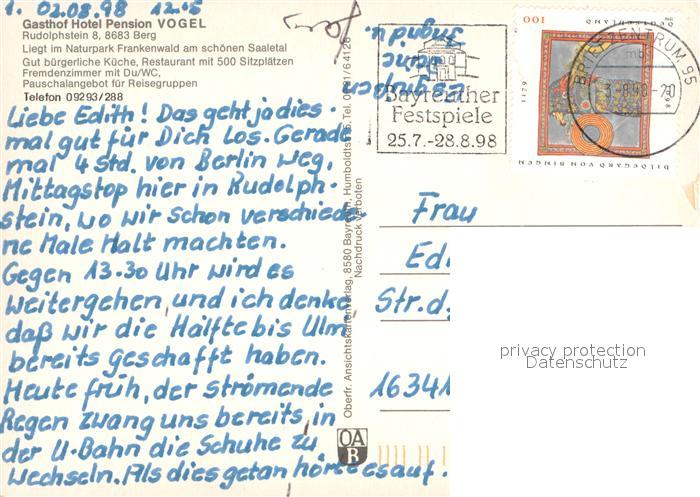 1. 02.08.98 12.15
Gasthof Hotel Pension VOGEL
Rudolphstein 8, 8683 Berg
Liegt im Naturpark Frankenwald am schönen Saaletal
Gut bürgerliche Küche, Restaurant mit 500 Sitzplätzen
Fremdenzimmer mit Du/WC,
Pauschalangebot für Reisegruppen
Telefon 09293/288
Liebe Edith! Das geht ja dies-
mal gut für Dich los. Gerade
mal 4 Std. von Berlin weg,
Mittagstop hier in Rudolph-
stein, wo wir schon verschiede-
ne Male Halt machten.
Gegen 13.30 Uhr wird es
weitergehen, und ich denke
daß wir die Hälfte bis Ulm
bereits geschafft haben.
Heute früh, der strömende
Regen zwang uns bereits, in
der U-Bahn die Schuhe zu
wechseln. Als dies getan hörte es auf.
Oberfr. Ansichtskartenverlag, 8580 Bayreuth, Humboldtstr. Tel. 0921/64126
Nachdruck verboten
OA
B
Bayreuther
Festspiele
25.7.-28.8.98
100
DEUTSCHLAND
1179
1998
HILDEGARD VON BINGEN
BRIEFZENTRUM 95
mb
-3.-8.98-20
Frau
Edi
Str.d.
16341
privacy protection
Datenschutz